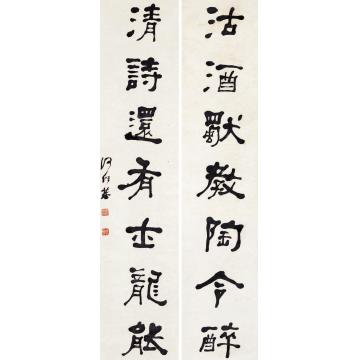 沽酒教陶令醉
清詩還有士龍能
何紹基